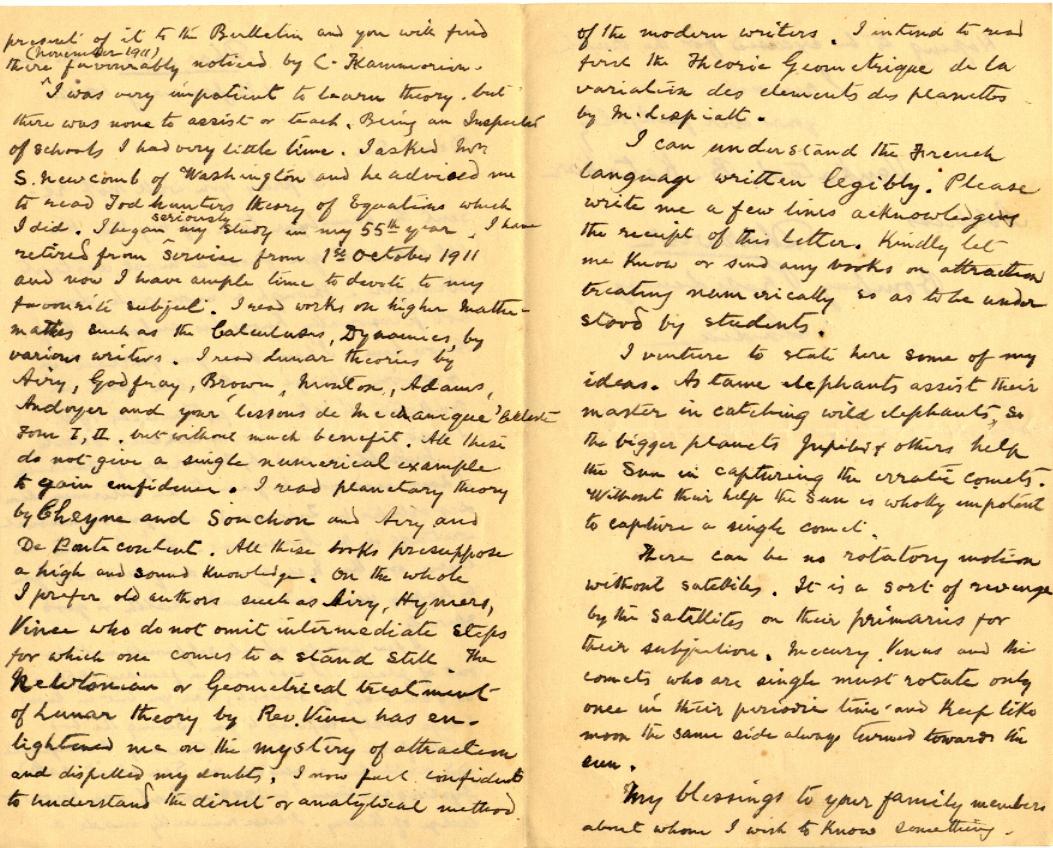 present of it to the Bulletin and you will find
(November 1911)
there favourably noticed by C. Flammarion.
I was very impatient to learn theory. but
there was none to assist or teach. Being an Inspector
of schools I had very little time. I asked Mr
S. Newcomb of Washington and he advised me
to read Todhunters theory of Equations which
I did. I began my seriously study in my 55th year. I have
retired from service from 1st October 1911
and now I have ample time to devote to my
favourite subject. I read works on higher Mathe-
matics such as the Calculuses, Dynamics, by
various writers. I read lunar theories by
Airy, Godfray, Brown, Newton, Adams,
Andoyer and your 'lessons de Mechanique' Celeste
Tom I, II. but without much benefit. All these
do not give a single numerical example
to gain confidence. I read planetary theory
by Cheyne and Souchon and Airy and
De Pontecoulent. All these books presuppose
a high and sound knowledge. On the whole
I prefer old authors such as Airy, Hymers,
Vince who do not omit intermediate steps
for which one comes to a stand still. The
Newtonian or Geometrical treatment
of Lunar theory by Rev. Vince has en-
lightened me on the mystery of attraction
and dispelled my doubts. I now feel confident
to understand the direct or analytical method
of the modern writers. I intend to read
first the Theorie Geometrique de la
variation des elements des planettes
by M. despiatt.
I can understand the French
language written legibly. Please
write me a few lines acknowledging
the receipt of this letter. Kindly let
me know or send any books on attraction
treating numerically so as to be under
stood by students.
I venture to state here some of my
ideas. As tame elephants assist their
master in catching wild elephants, so
the bigger planets Jupiter & others help
the Sun in capturing the erratic comets.
Without their help the Sun is wholly impotent
to capture a single comet.
There can be no rotatory motion
without satellites. It is a sort of revenge
by the satellites on their primaries for
their subjection. Mercury, Venus and the
comets who are single must rotate only
once in their periodic time and keep like
moon the same side always turned towards the
sun.
My blessings to your family members
about whom I wish to know something.